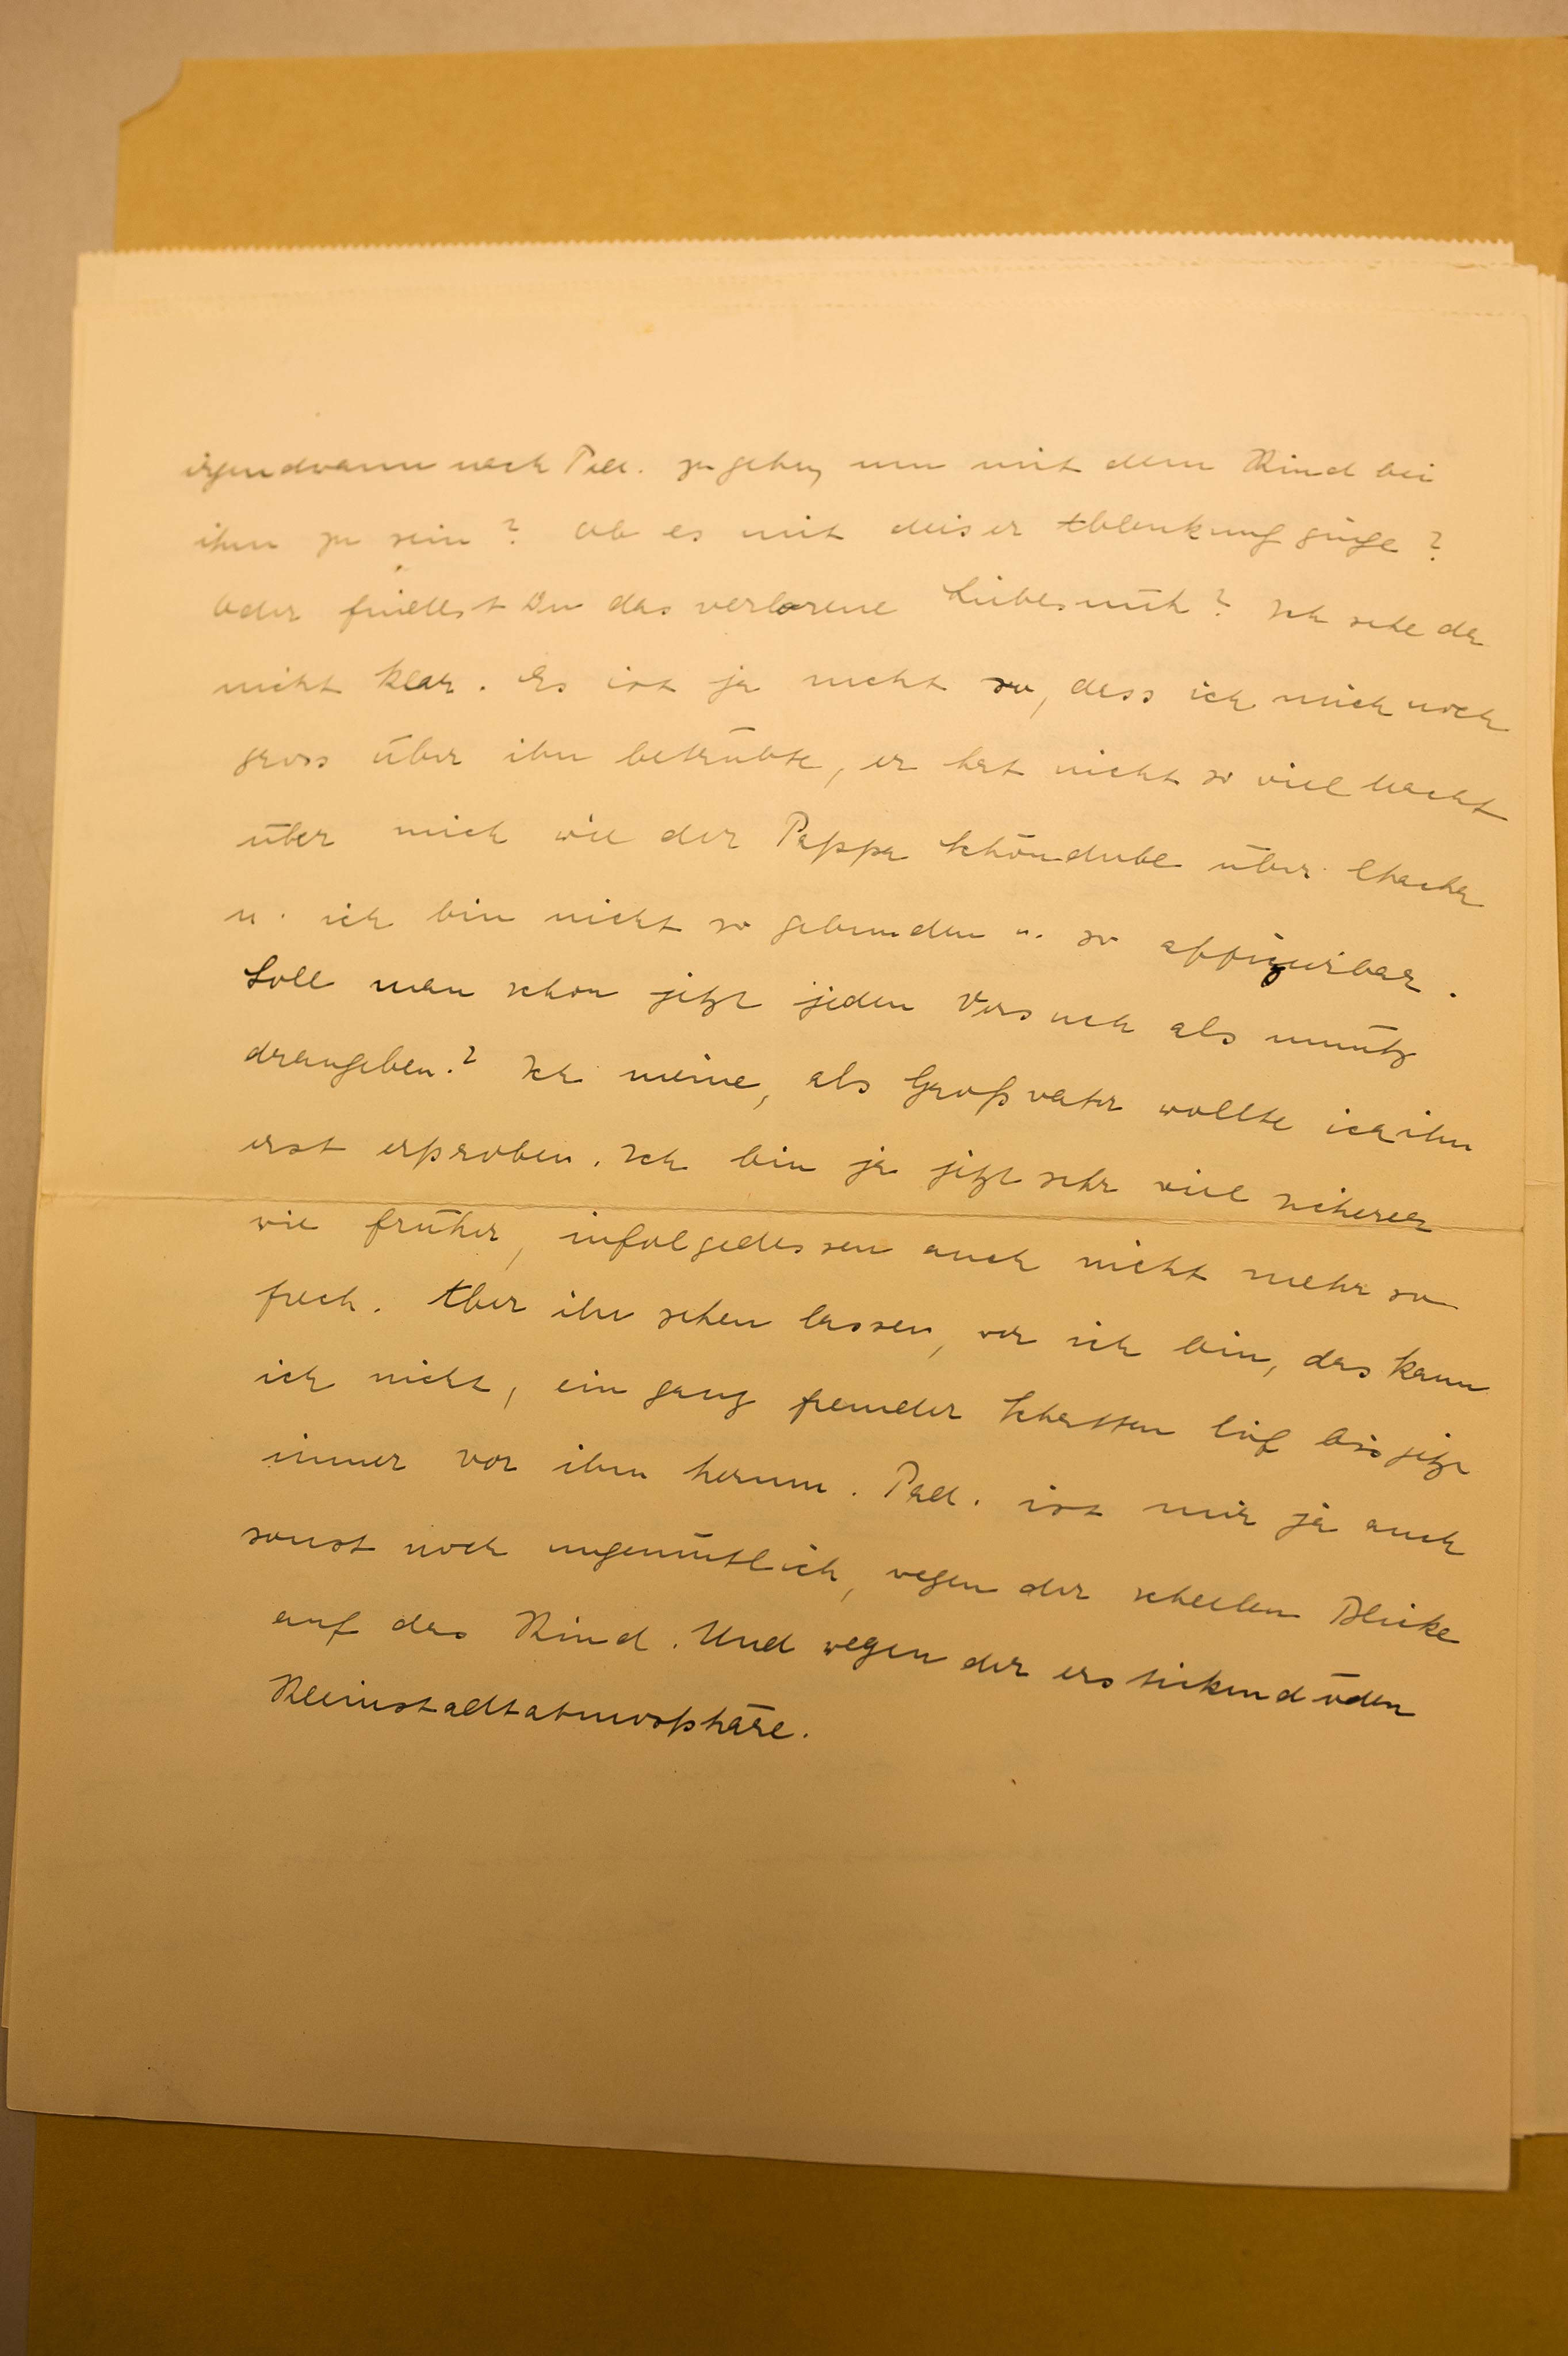 irgendwann nach Pad. zu gehen, um mit dem Kind bei
ihm zu sein? Ob es mit dieser Ablenkung ginge?
Oder findest Du das verlorene Liebesmüh? Ich sehe da
nicht klar. Es ist ja nicht so, dass ich mich noch
gross über ihn betrübte, er hat nicht so viel Macht
über mich wie der Pappa Schöndube über
u. ich bin nicht so gebunden u. so affizierbar.
Soll man schon jetzt jeden Versuch als unnütz
drangeben? Ich meine, als Großvater wollte ich ihn
erst erproben. Ich bin ja jetzt sehr viel sicherer
wie früher, infolgedessen auch nicht mehr so
frech. Aber ihn sehen lassen, wer ich bin, das kann
ich nicht, ein ganz fremder Schatten lief bis jetzt
immer vor ihm herum. Pad. ist mir ja auch
sonst noch ungemütlich, wegen der scheelen Blicke
auf das Kind. Und wegen der erstickend öden
Kleinstadtatmosphäre.